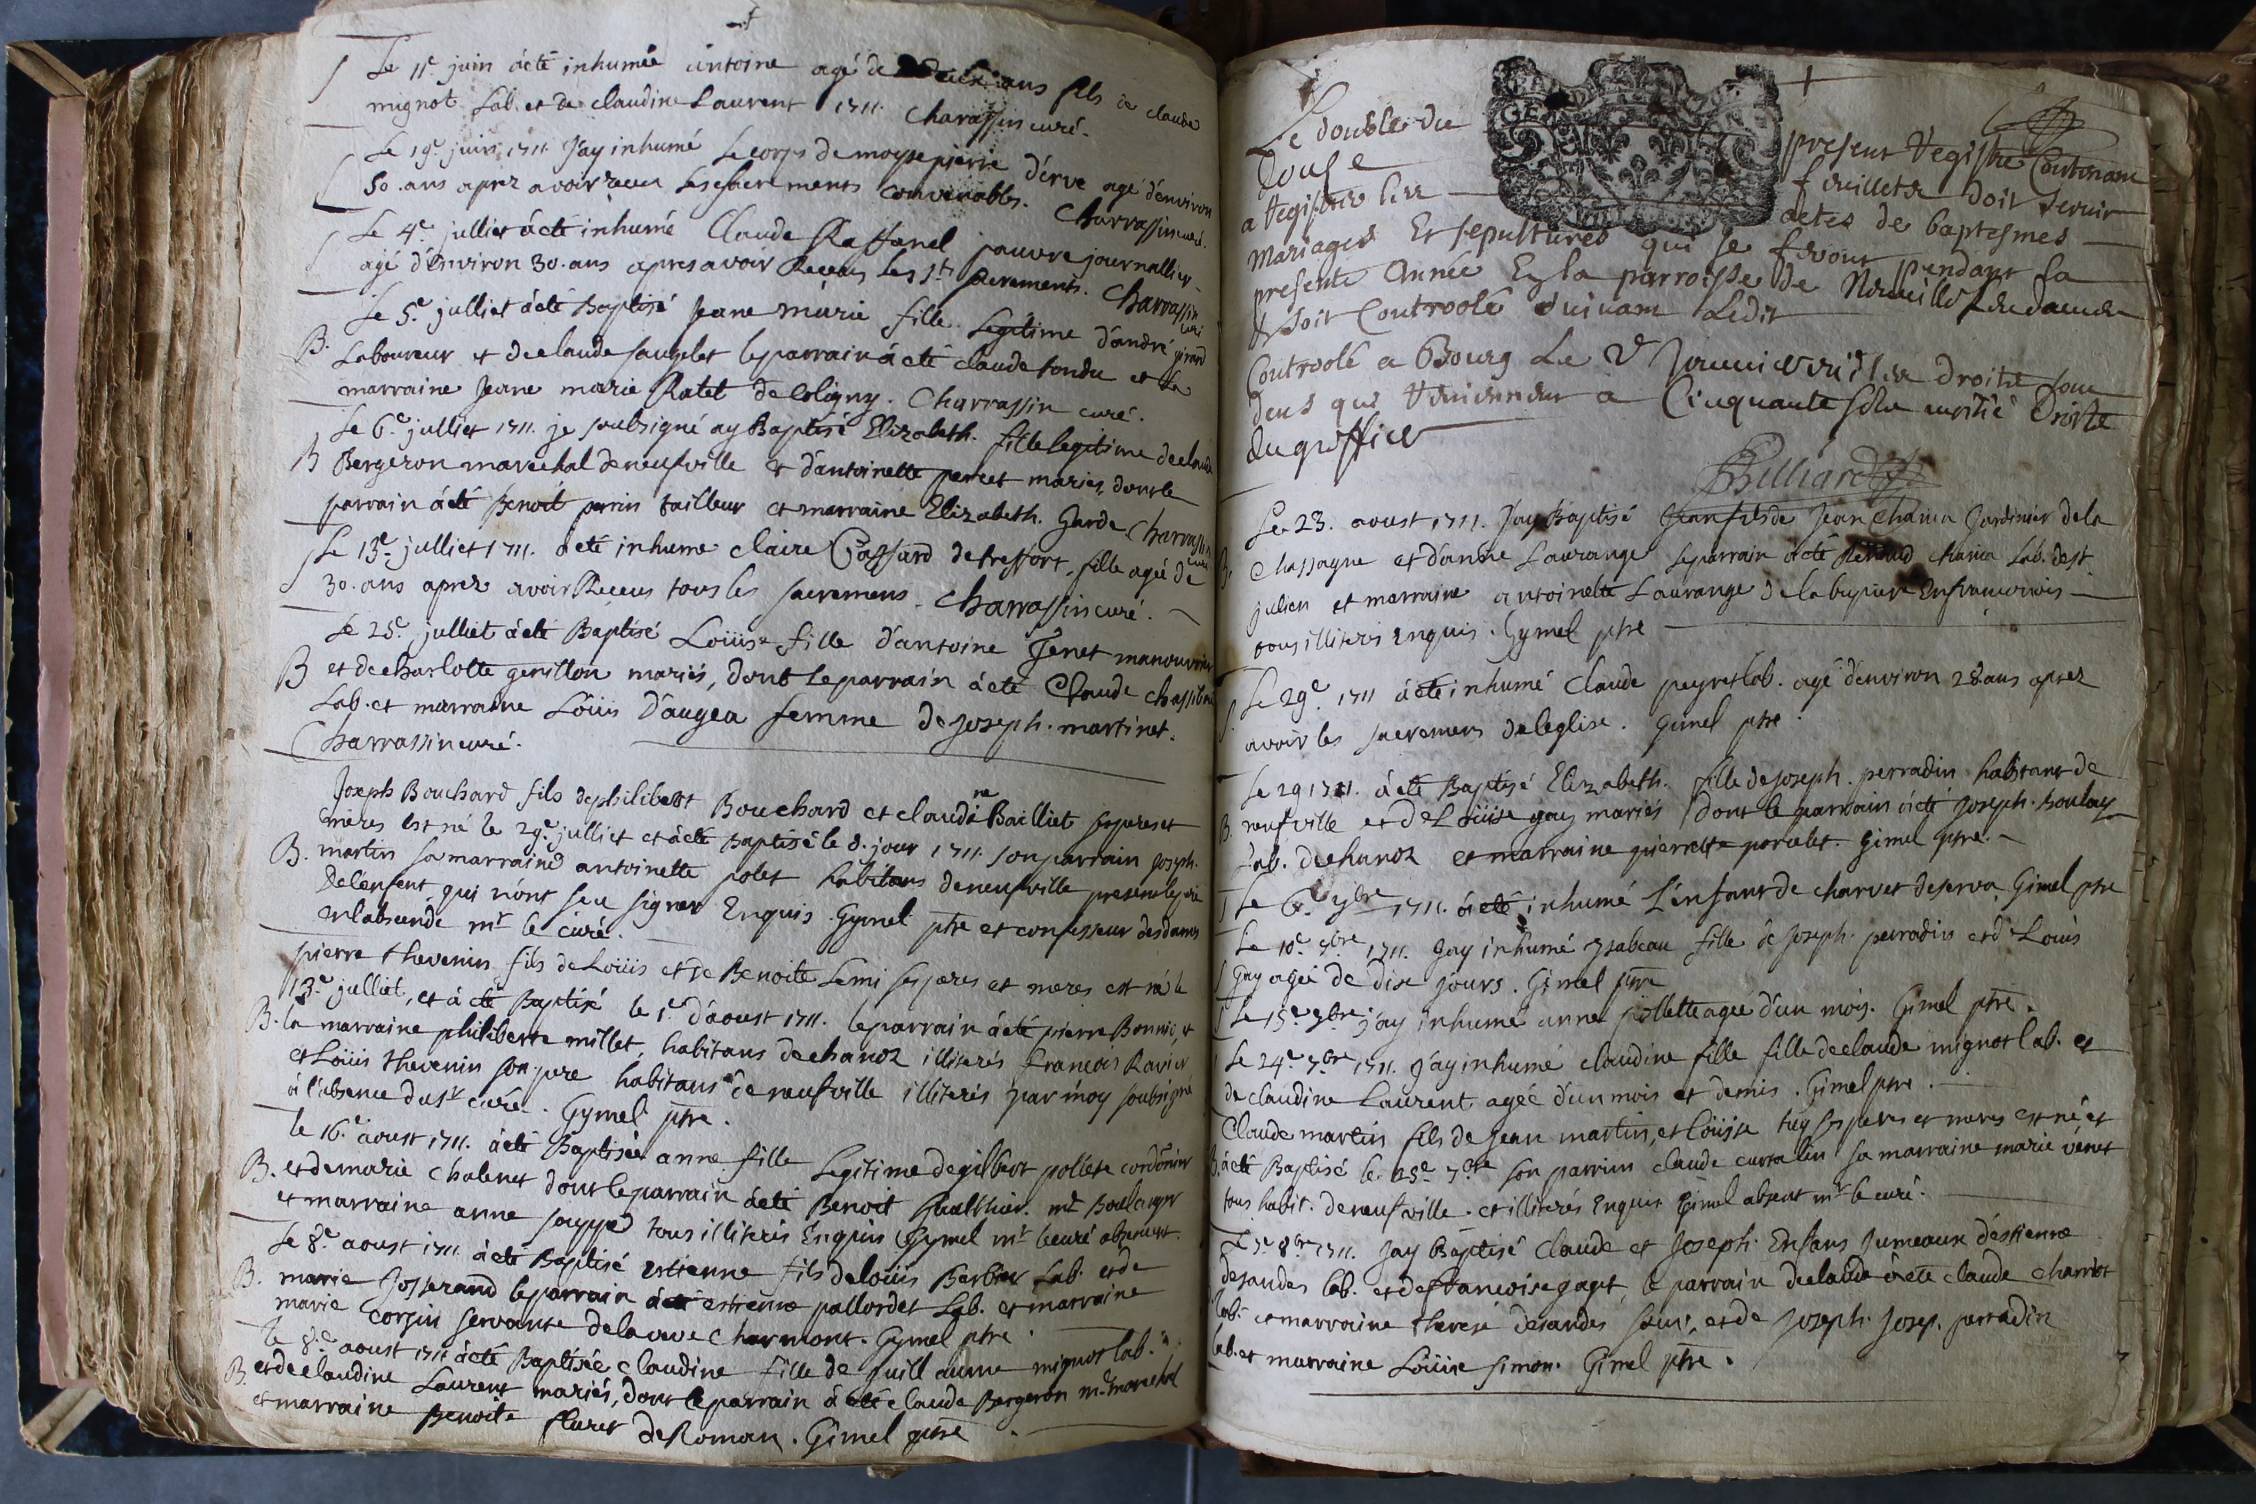 Le 11e juin a été inhumée antoine agé de deux ans fils de claude
mignot Lab. et de claudine Laurent 1711. Charassin curé.
Le 19e juin 1711 J'ay inhumé Le corps de moyse pierre d'erve agé d'environ
50. ans aprez avoir receu les sacrements convenables. Charrassin curé.
Le 4e julliet a été inhumé Claude Raffanel pauvre journallier
agé d'environ 30. ans apres avoir Receus les Sts sacrements. Charrassin curé
Le 5e julliet a été Baptisé Jeane marie fille Legitime d'andré girard
B. Laboureur et de claude sauzelet le parrain a été claude tondu et La
marraine Jeane marie Ratet de Coligny. Charrassin curé.
Le 6e julliet 1711. je soubsigné ay Baptisé Elizabeth. fille legitime de claude
B Bergeron marechal de neufville et d'antoinette percet mariés, dont le
parrain a été Benoit perrin tailleur et marraine Elizabeth. Garde Charrassin curé
Le 13e julliet 1711. a été inhumé claire Gassard de tressort, fille agé de
30. ans aprez avoir Receus tous les sacremens. Charrassin curé.
Le 25e julliet a été Baptisé Loüise fille d'antoine Jenet manouvrier
B et de charlotte genillon mariés, dont le parrain a été Claude chassibou
Lab. et marraine Loüis D'augea femme de joseph. martinet.
Charrassin curé.
Joseph Bouchard fils de philibert Bouchard et claudine Bailliet ses peres et
meres est né le 29e julliet et a été baptisé le d. jour 1711. son parrain joseph.
B. martin sa marraine antoinette polet habitans de neufville present le pere
De l'enfent qui n'ont seu signer Enquis. Gymel ptre et confesseur des dames
en l'absence de mr le curé.
pierre thevenin fils de Loüis et de Benoite Lemi ses peres et meres est né le
13e julliet, et a été Baptisé le 1e d'aoust 1711. le parrain a été pierre Bonnic, et
B. la marraine philiberte millet, habitans de chanoz illiterés François Ravier
et Loüis thevenin son pere habitans de neufville illiterés par moy soubsigné
a l'absence du sr curé. Gymel ptre.
le 16e aoust 1711. a été Baptisée anne fille Legitime de gilbert pollete cordonier
B. et de marie chalenet dont le parrain a été Benoit gualthier. me Boulanger
et marraine anne souppe tous illiterés Enquis Gymel mr le curé absent.
Le 8e aoust 1711. a été Baptisé estienne fils de loüis Barbier Lab. et de
B. marie Josserand le parrain a été estienne pallordet Lab. et marraine
marie corsin servante de la veve Charmont. Gymel ptre.
le 8e aoust 1711 a été Baptisée claudine fille de guillaume mignot lab.
B. et de claudine Laurent mariés, dont le parrain a été claude Bergeron me marechal
et marraine Benoite fluret de Roman. Gimel ptre.
Le double du present Registre Contenant
Douse feuillets doit servir
a Registrer les actes de baptesmes
Mariages Et sepultures qui se feront pendant la
presente Année En la parroisse de Neufville les dames
& soit Controolé suivant Ledit
Controlé a Bourg Le janvier
deux qui reviennent a Cinquante sols moitié Droits
du greffier
Billiard
Le 23. aoust 1711. Jay Baptisé Jean fils de Jean chaina Jardinier de la
B. chassagne et d'anne Laurange le parrain a été Renaud chaina Lab. de st
julien et marraine antoinette Laurange de la bupiere En franconnois
tous illiterés enquis. Gymel ptre
Le 29e 1711 a été inhumé Claude peyret lab. agé d'environ 28 ans aprez
avoir les sacremens de leglise. Gimel ptre.
Le 29 1711. a été Baptisé Elizabeth. fille de joseph. perradin habitant de
B. neufville et de Loüise gay mariés dont le parrain a été joseph. Boulay
Lab. de chanoz et marraine pierrette porcelet. Gimel ptre.
Le 6e 7bre 1711. a été inhumé L'enfant de charvet deserva Gimel ptre
Le 10e 7bre 1711. Jay inhumé ysabeau fille de joseph. perradin et de Loüis
Gay agée de dix jours. Gimel ptre
Le 15e 7bre j'ay inhumé anne pollette agée d'un mois. Gimel ptre.
Le 24e 7bre 1711. j'ay inhumé claudine fille fille de claude mignot lab. et
de claudine Laurent agée d'un mois et demis. Gimel ptre.
Claude martin fils de jean martin, et Loüise tuy ses peres et meres est né et
B. a été Baptisé le 25e 7bre son parrin claude curtalin sa marraine marie venet
tous habit. de neufville. et illiterés Enquis Gimel absent mr le curé.
Le 5e 8bre 1711. Jay Baptisé Claude et Joseph. Enfans Jumeaux d'estienne
desandes lab. et de francoise gaget, le parrain de claude a été claude charriot
lab. et marraine therese desandes sœur, et de joseph. josep. perradin
lab. et marraine Loüise simon. Gimel ptre.